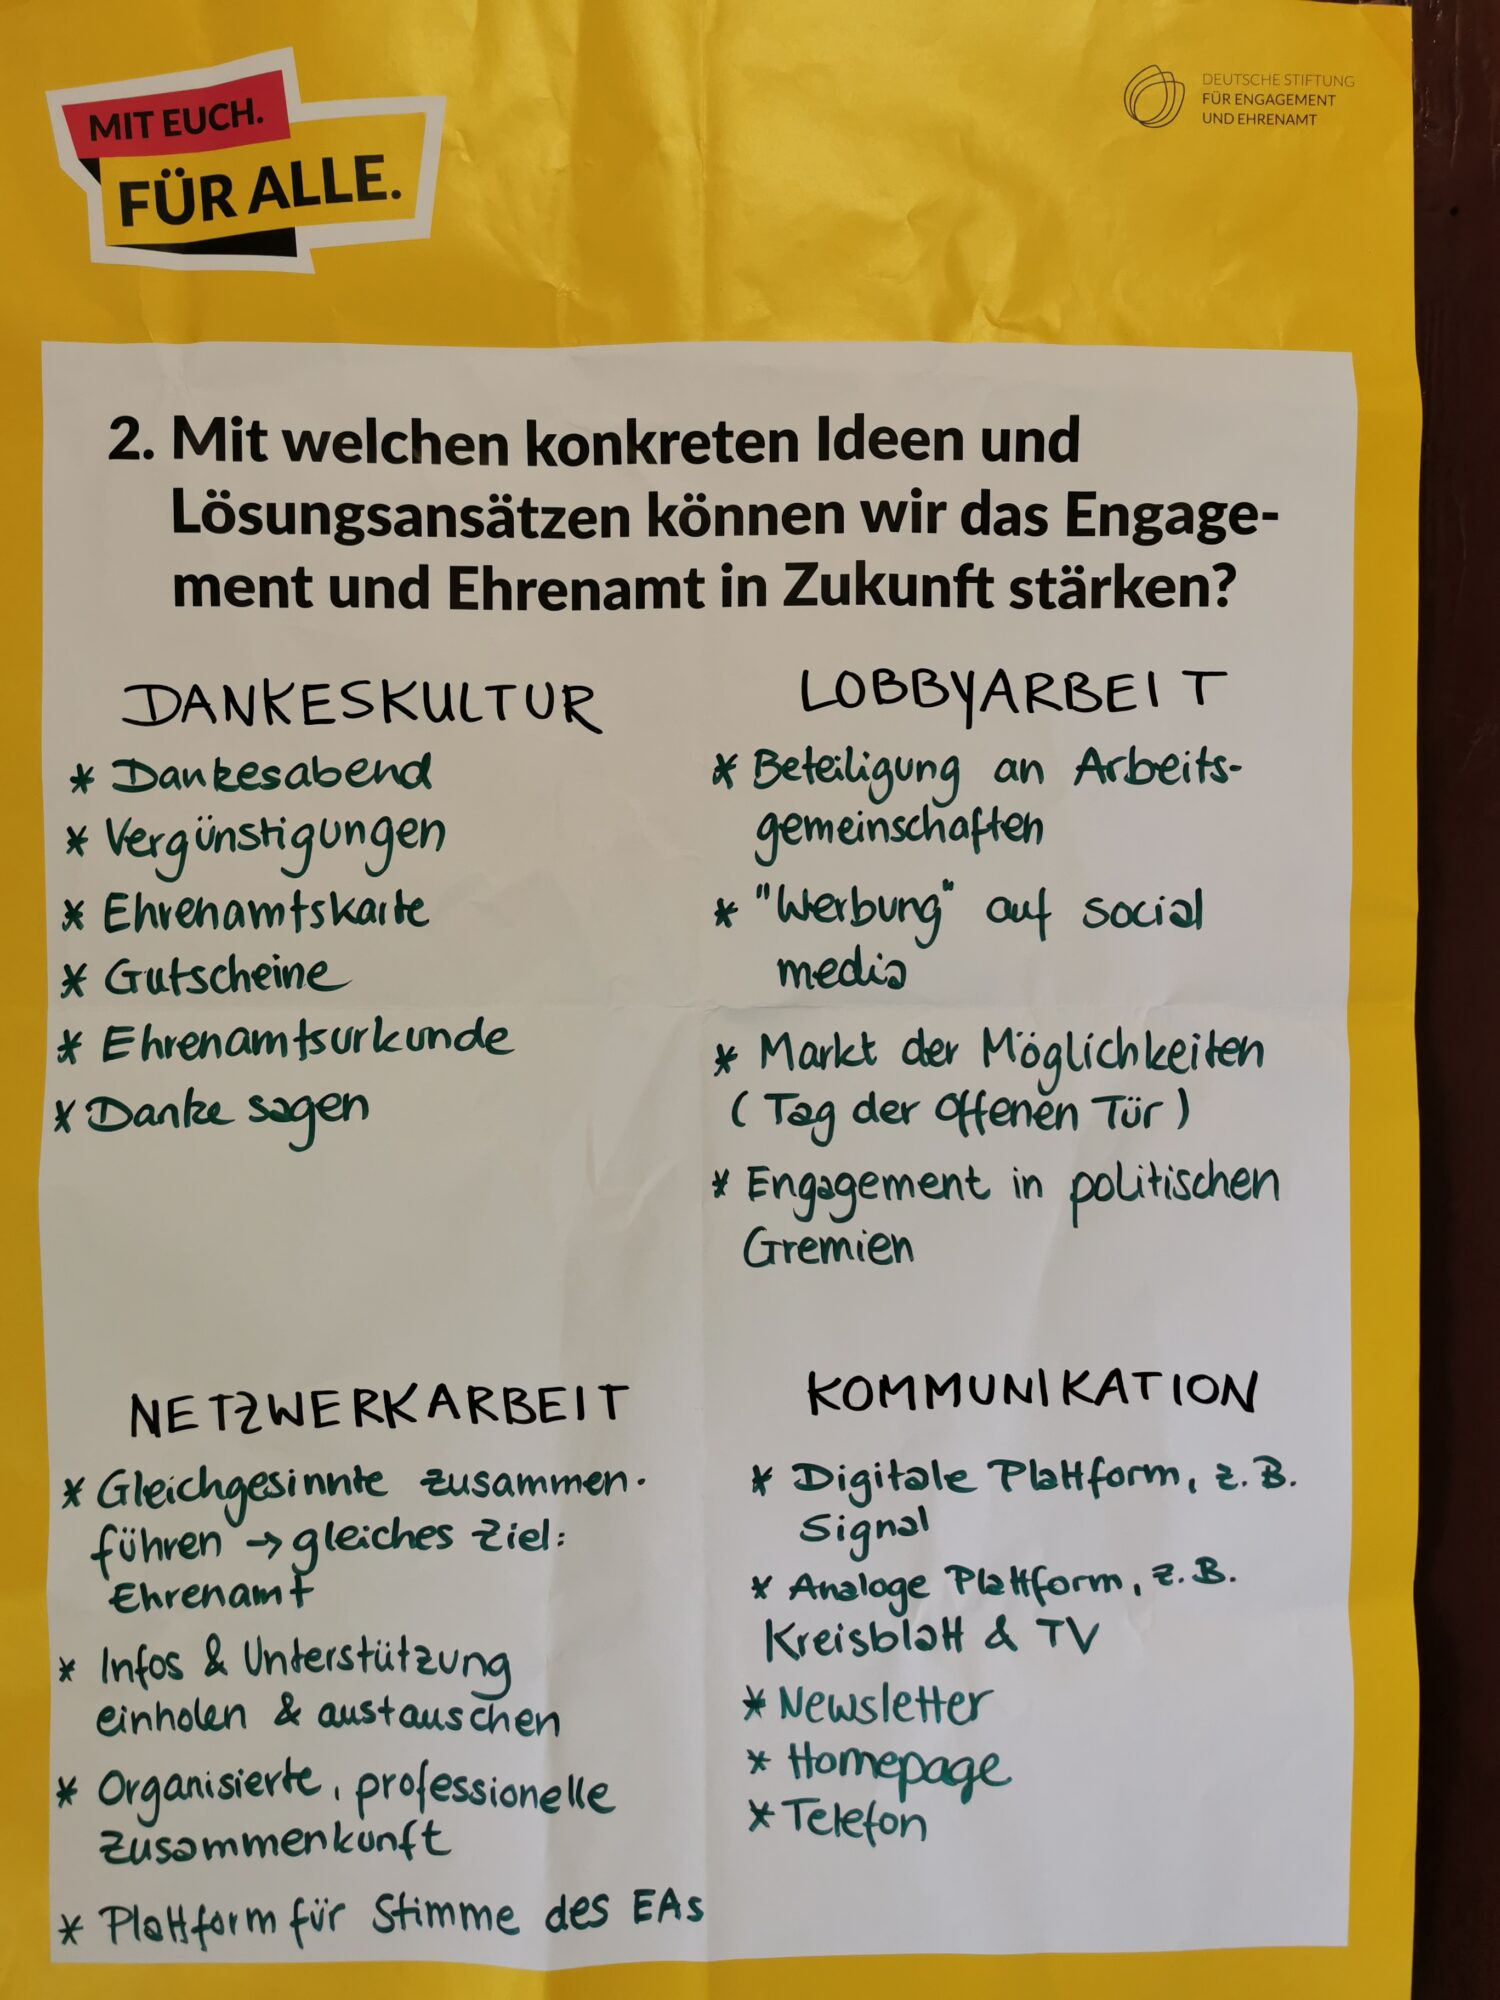 MIT EUCH.
FÜR ALLE.
DEUTSCHE STIFTUNG
FÜR ENGAGEMENT
UND EHRENAMT
2. Mit welchen konkreten Ideen und
Lösungsansätzen können wir das Engage-
ment und Ehrenamt in Zukunft stärken?
DANKESKULTUR
* Dankesabend
* Vergünstigungen
* Ehrenamtskarte
* Gutscheine
* Ehrenamtsurkunde
* Danke sagen
LOBBYARBEIT
* Beteiligung an Arbeits-
gemeinschaften
* "Werbung" auf social
media
* Markt der Möglichkeiten
(Tag der offenen Tür)
* Engagement in politischen
Gremien
NETZWERKARBEIT
* Gleichgesinnte zusammen-
führen → gleiches Ziel:
Ehrenamt
* Infos & Unterstützung
einholen & austauschen
* Organisierte, professionelle
Zusammenkunft
* Plattform für Stimme des EAs
KOMMUNIKATION
* Digitale Plattform, z.B.
Signal
* Analoge Plattform, z.B.
Kreisblatt & TV
* Newsletter
* Homepage
* Telefon